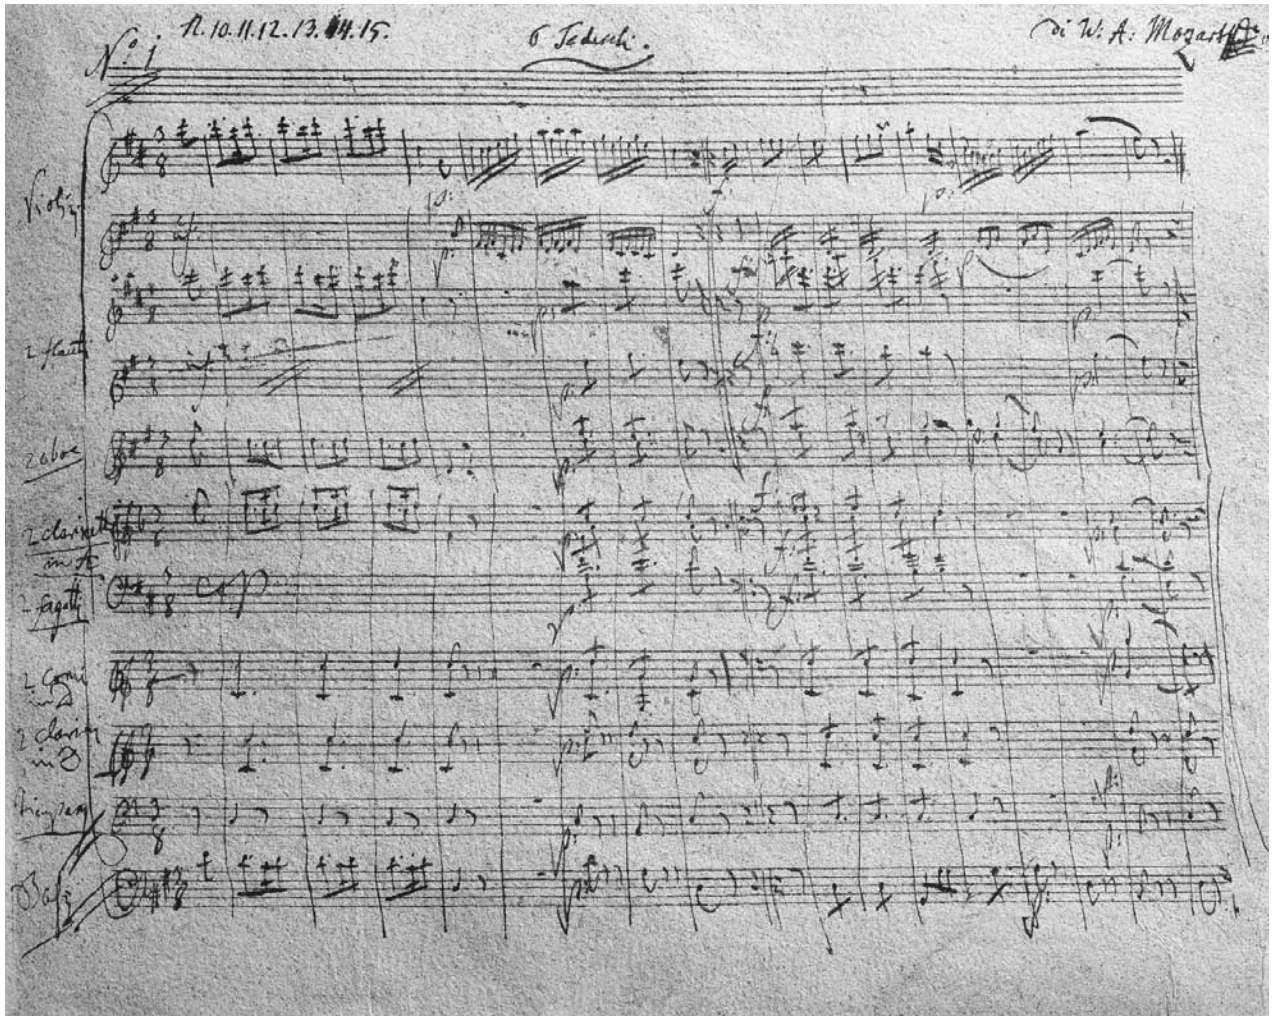 N. 10. 11. 12. 13. 14. 15. 6 Tedeschi. Di W: A: Mozart
N.º 1
Violini
2 flauti
2 oboe
2 clarinetti
in A
2 fagotti
2 Corni
in D
2 clarini
in D
Timpani
Bassi